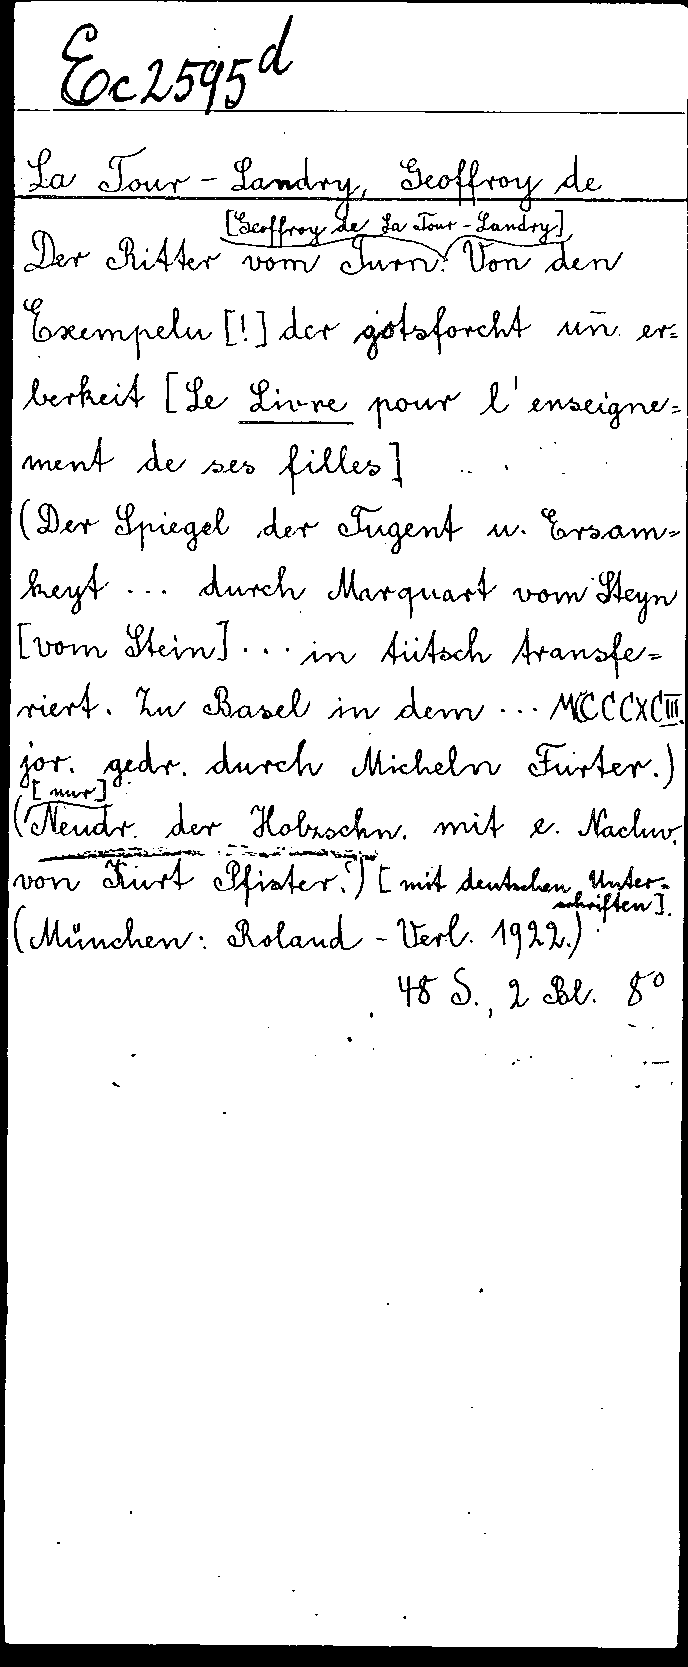 Ec 2595 d
La Tour-Landry, Geoffroy de
[Geoffroy de La Tour-Landry]
Der Ritter vom Turn. Von den
Exempeln [!] der gotsforcht un̄ er=
berkeit [Le Livre pour l'enseigne=
ment de ses filles]
(Der Spiegel der Tugent u. Ersam=
keyt ... durch Marquart vom Steyn
[vom Stein] ... in tütsch transfe=
riert. Zu Basel in dem ... MCCCCXCIII.
jor. gedr. durch Micheln Furter.)
[nur]
(Neudr. der Holzschn. mit e. Nachw.
von Kurt Pfister.) [mit deutschen Unter=
schriften].
(München: Roland-Verl. 1922.)
48 S., 2 Bl. 8°